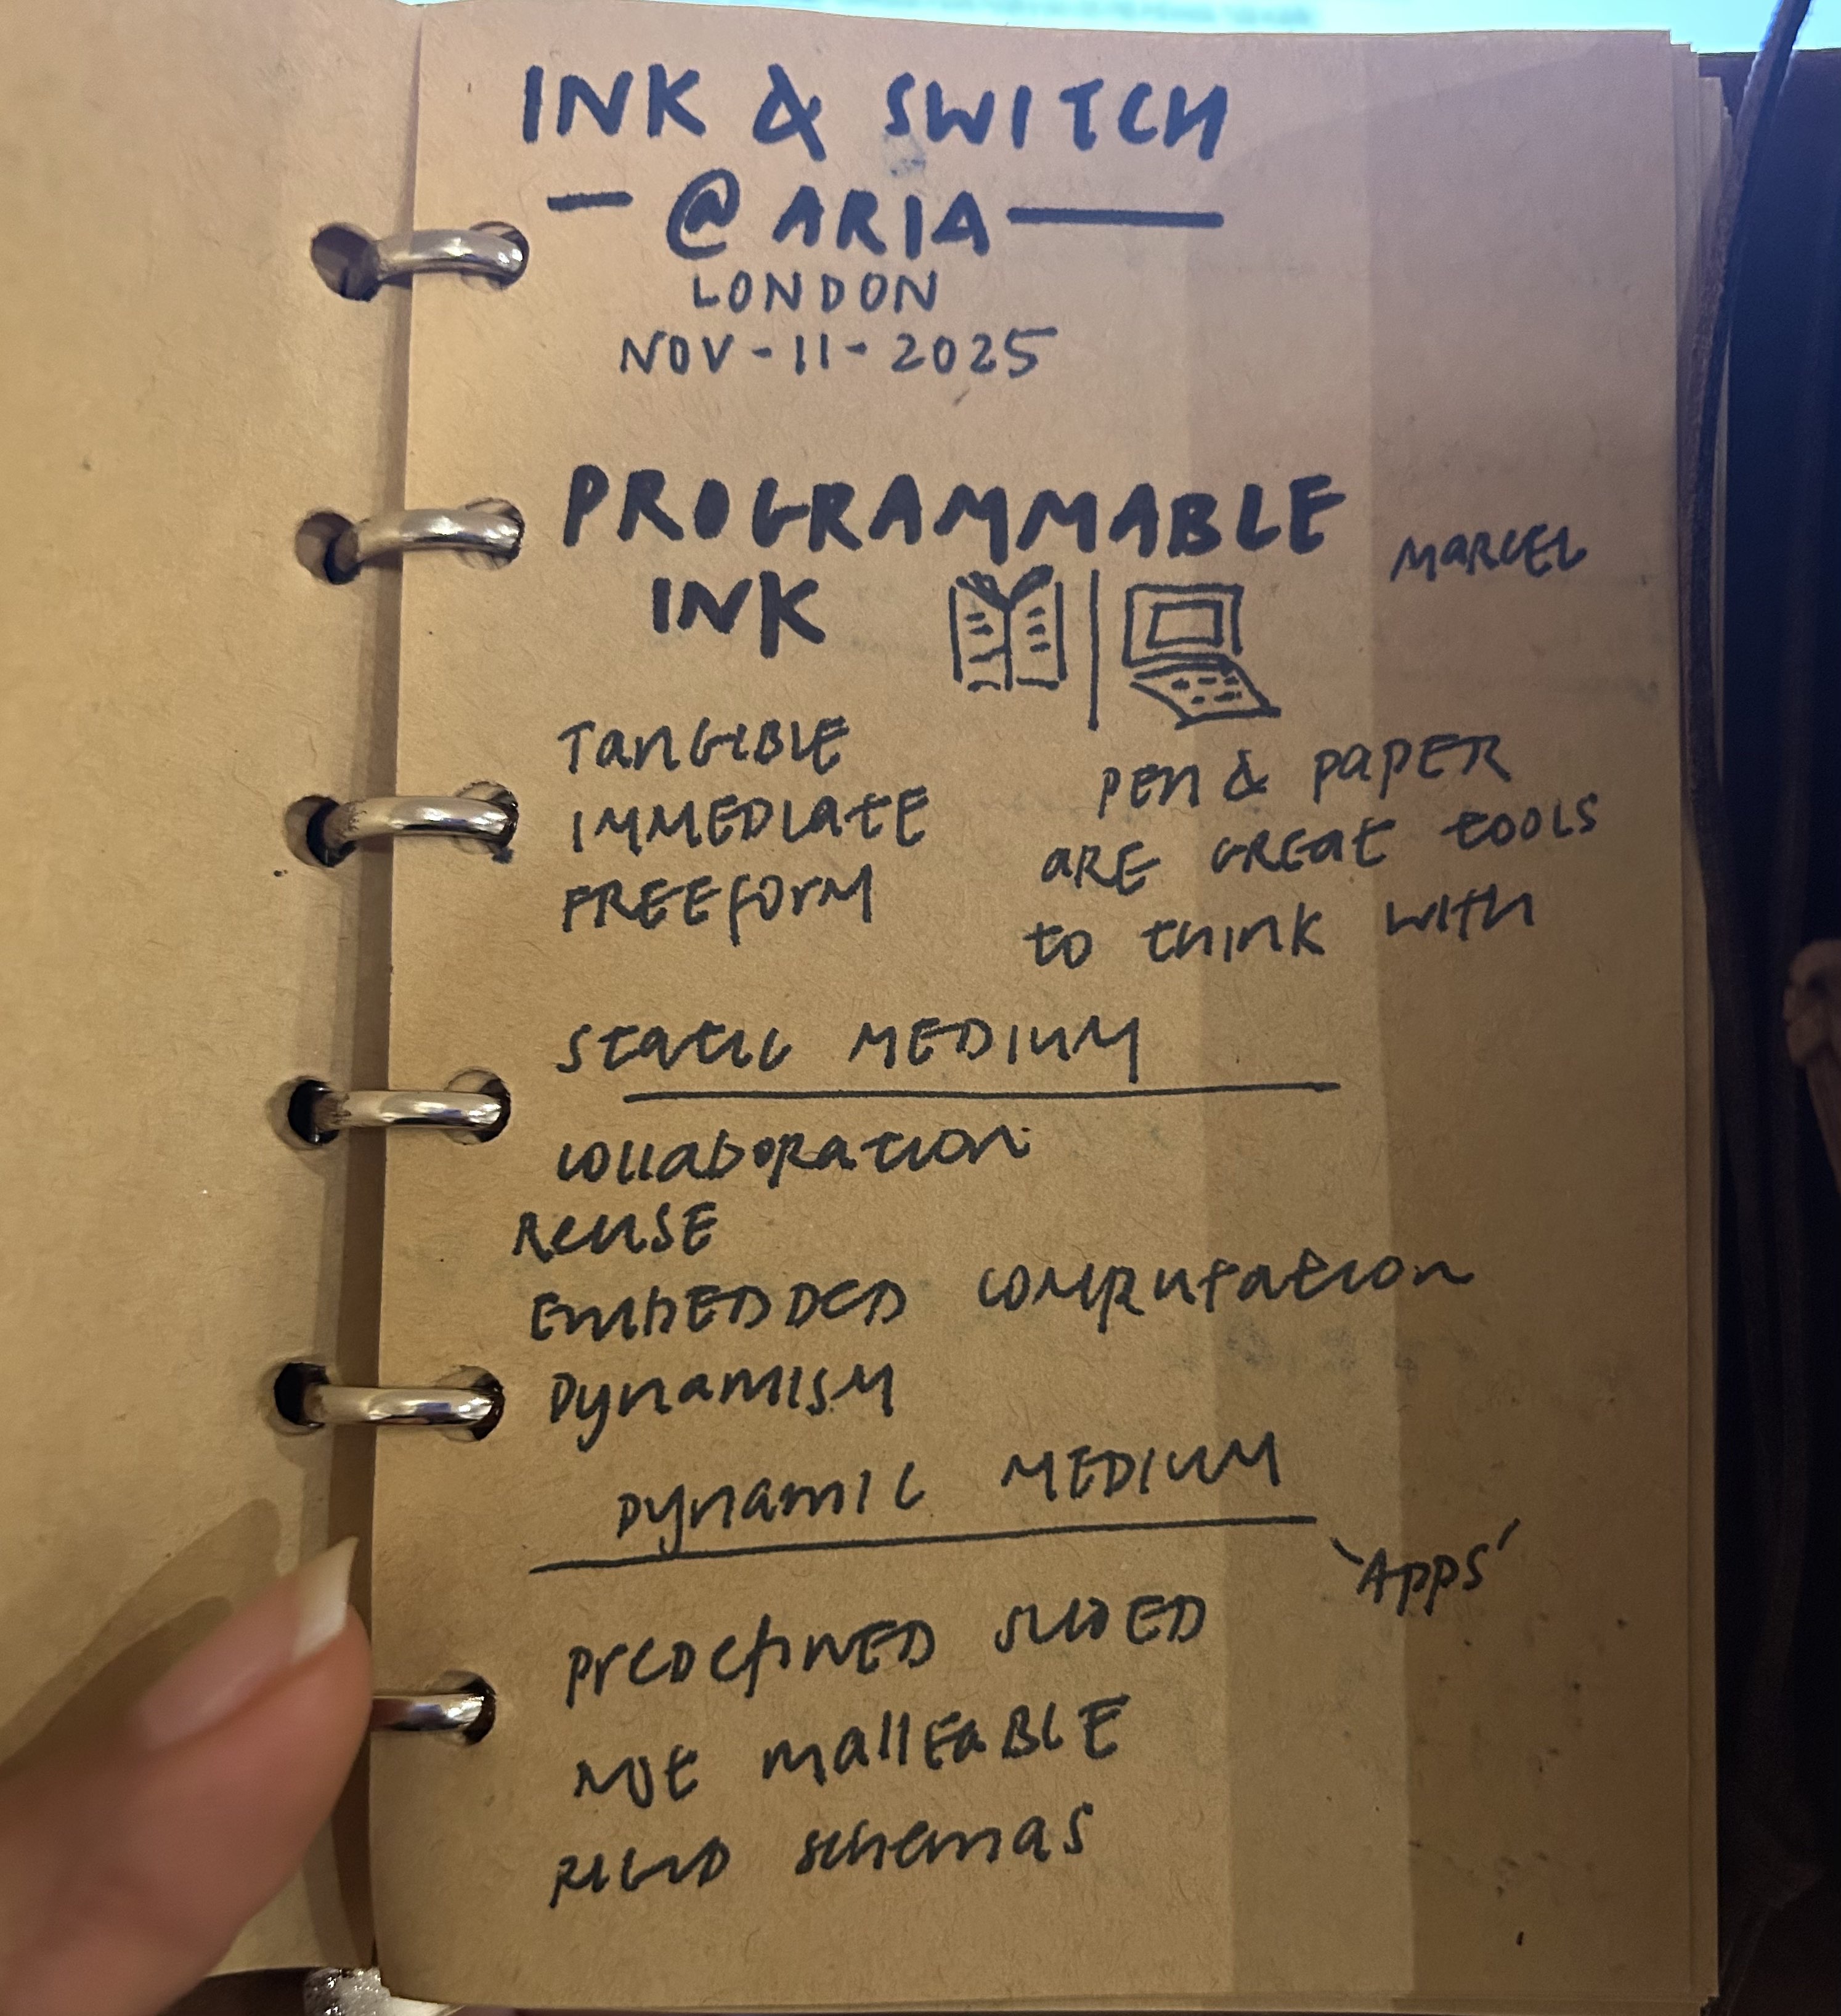 INK & SWITCH
— @ ARIA —
LONDON
NOV-11-2025
PROGRAMMABLE
INK
MARCEL
TANGIBLE
IMMEDIATE
FREEFORM
PEN & PAPER
ARE GREAT TOOLS
TO THINK WITH
STATIC MEDIUM
COLLABORATION
REUSE
EMBEDDED COMPUTATION
DYNAMISM
DYNAMIC MEDIUM
'APPS'
PREDEFINED SILOED
NOT MALLEABLE
RIGID SCHEMAS